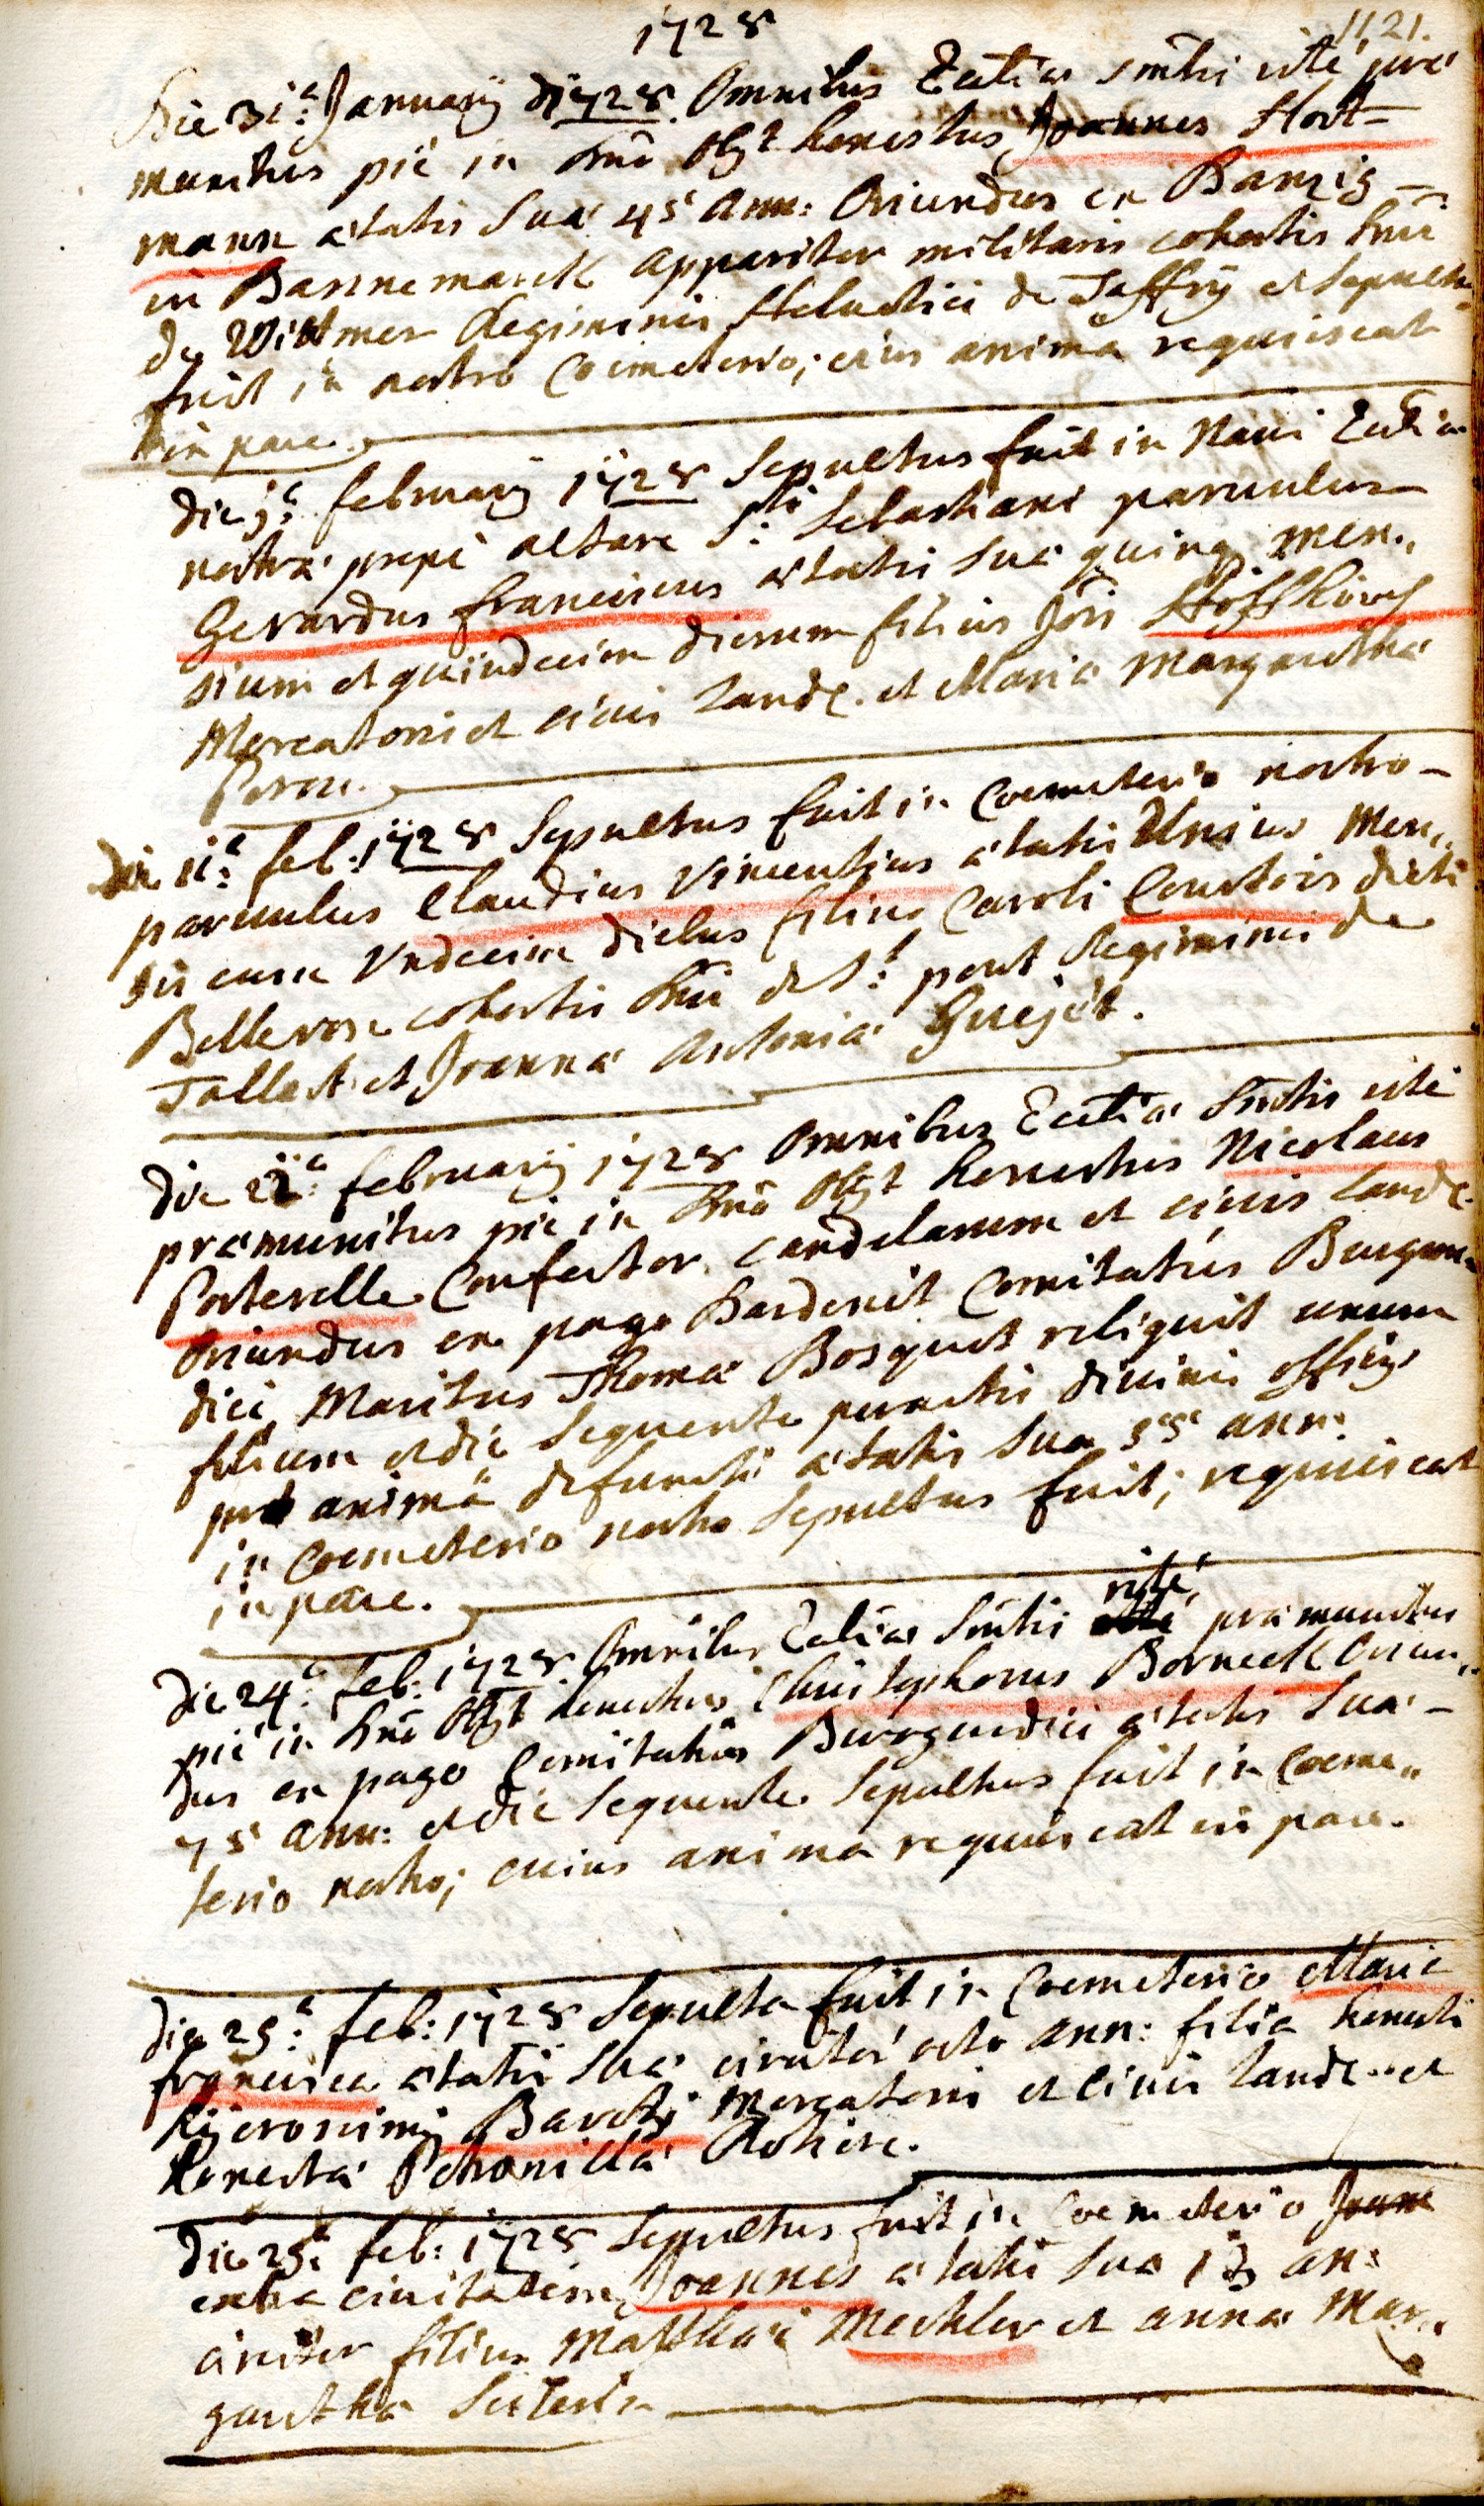 1728
1121.
Die 31ª: Januarij 1728. Omnibus Ecctiæ Smtis rité præ
munitus pié in Dnô obijt honestus Joannes Hort-
mann ætatis suæ 45 ann: Oriundus ex Banzig
in Dannemarck apparitor militaris cohortis Dni
de Wittmer Regiminis Helvetici de Jaffrij et sepultus
fuit in nostro Coemeterio; eius anima requiescat
in pace.
die februarij 1728 sepultus fuit in Navi Ecctiæ
nostræ propé altare Sti: Sebastiani parvulus
Gerardus franciscus ætatis suæ quinq men„
sium et quindecim dierum filius Jõis Hoffkirch
Mercatoris et civis Landæ. et Mariæ Margarethæ
Peron.
die 11ª: feb: 1728 Sepultus fuit in Coemeterio nostro-
parvulus Claudius Vincentius ætatis Unius Men„
sis cum Undecim diebus filius Caroli Courtois dicti
Bellerose cohortis Dni de St: pont Regiminis de
Tallart et Joannæ Antoniæ Guejot.
die 22ª: februarij 1728 Omnibus Ecctiæ Smtis rité
præmunitus pié in Dnô obijt honestus Nicolaus
Porterelle Confector candelarum et civis Landæ.
Oriundus ex pago Dardenit Comitatûs Burgun„
dici Maritus Thomæ Bosquet reliquit unum
filium et die sequente peractis divinis officijs
pro animâ defuncti ætatis suæ 55 ann:
in Coemeterio nostro sepultus fuit; requiescat
in pace.
die 24ª: feb: 1728. Omnibus Ecctiæ Smtis rité præmunitus
pié in Dnô obijt honestus Christophorus Borneck Oriun„
dus ex pago Comitatûs Burgundici ætatis suæ-
75 ann: et die sequente sepultus fuit in Coeme„
terio nostro; cuius anima requiescat in pace.
die 25ª: feb: 1728 Sepulta fuit in Coemeterio Maria
francisca ætatis suæ circiter octo ann: filia honesti
Hijeronimi Mercatoris et civis Landæ. et
honestæ Petronillæ
die 25ª feb: 1728 Sepultus fuit in Coemeterio
extra civitatem Joannes ætatis suæ 13 an:
circiter filius Matthæi Mechler et annæ Mar„
garethæ